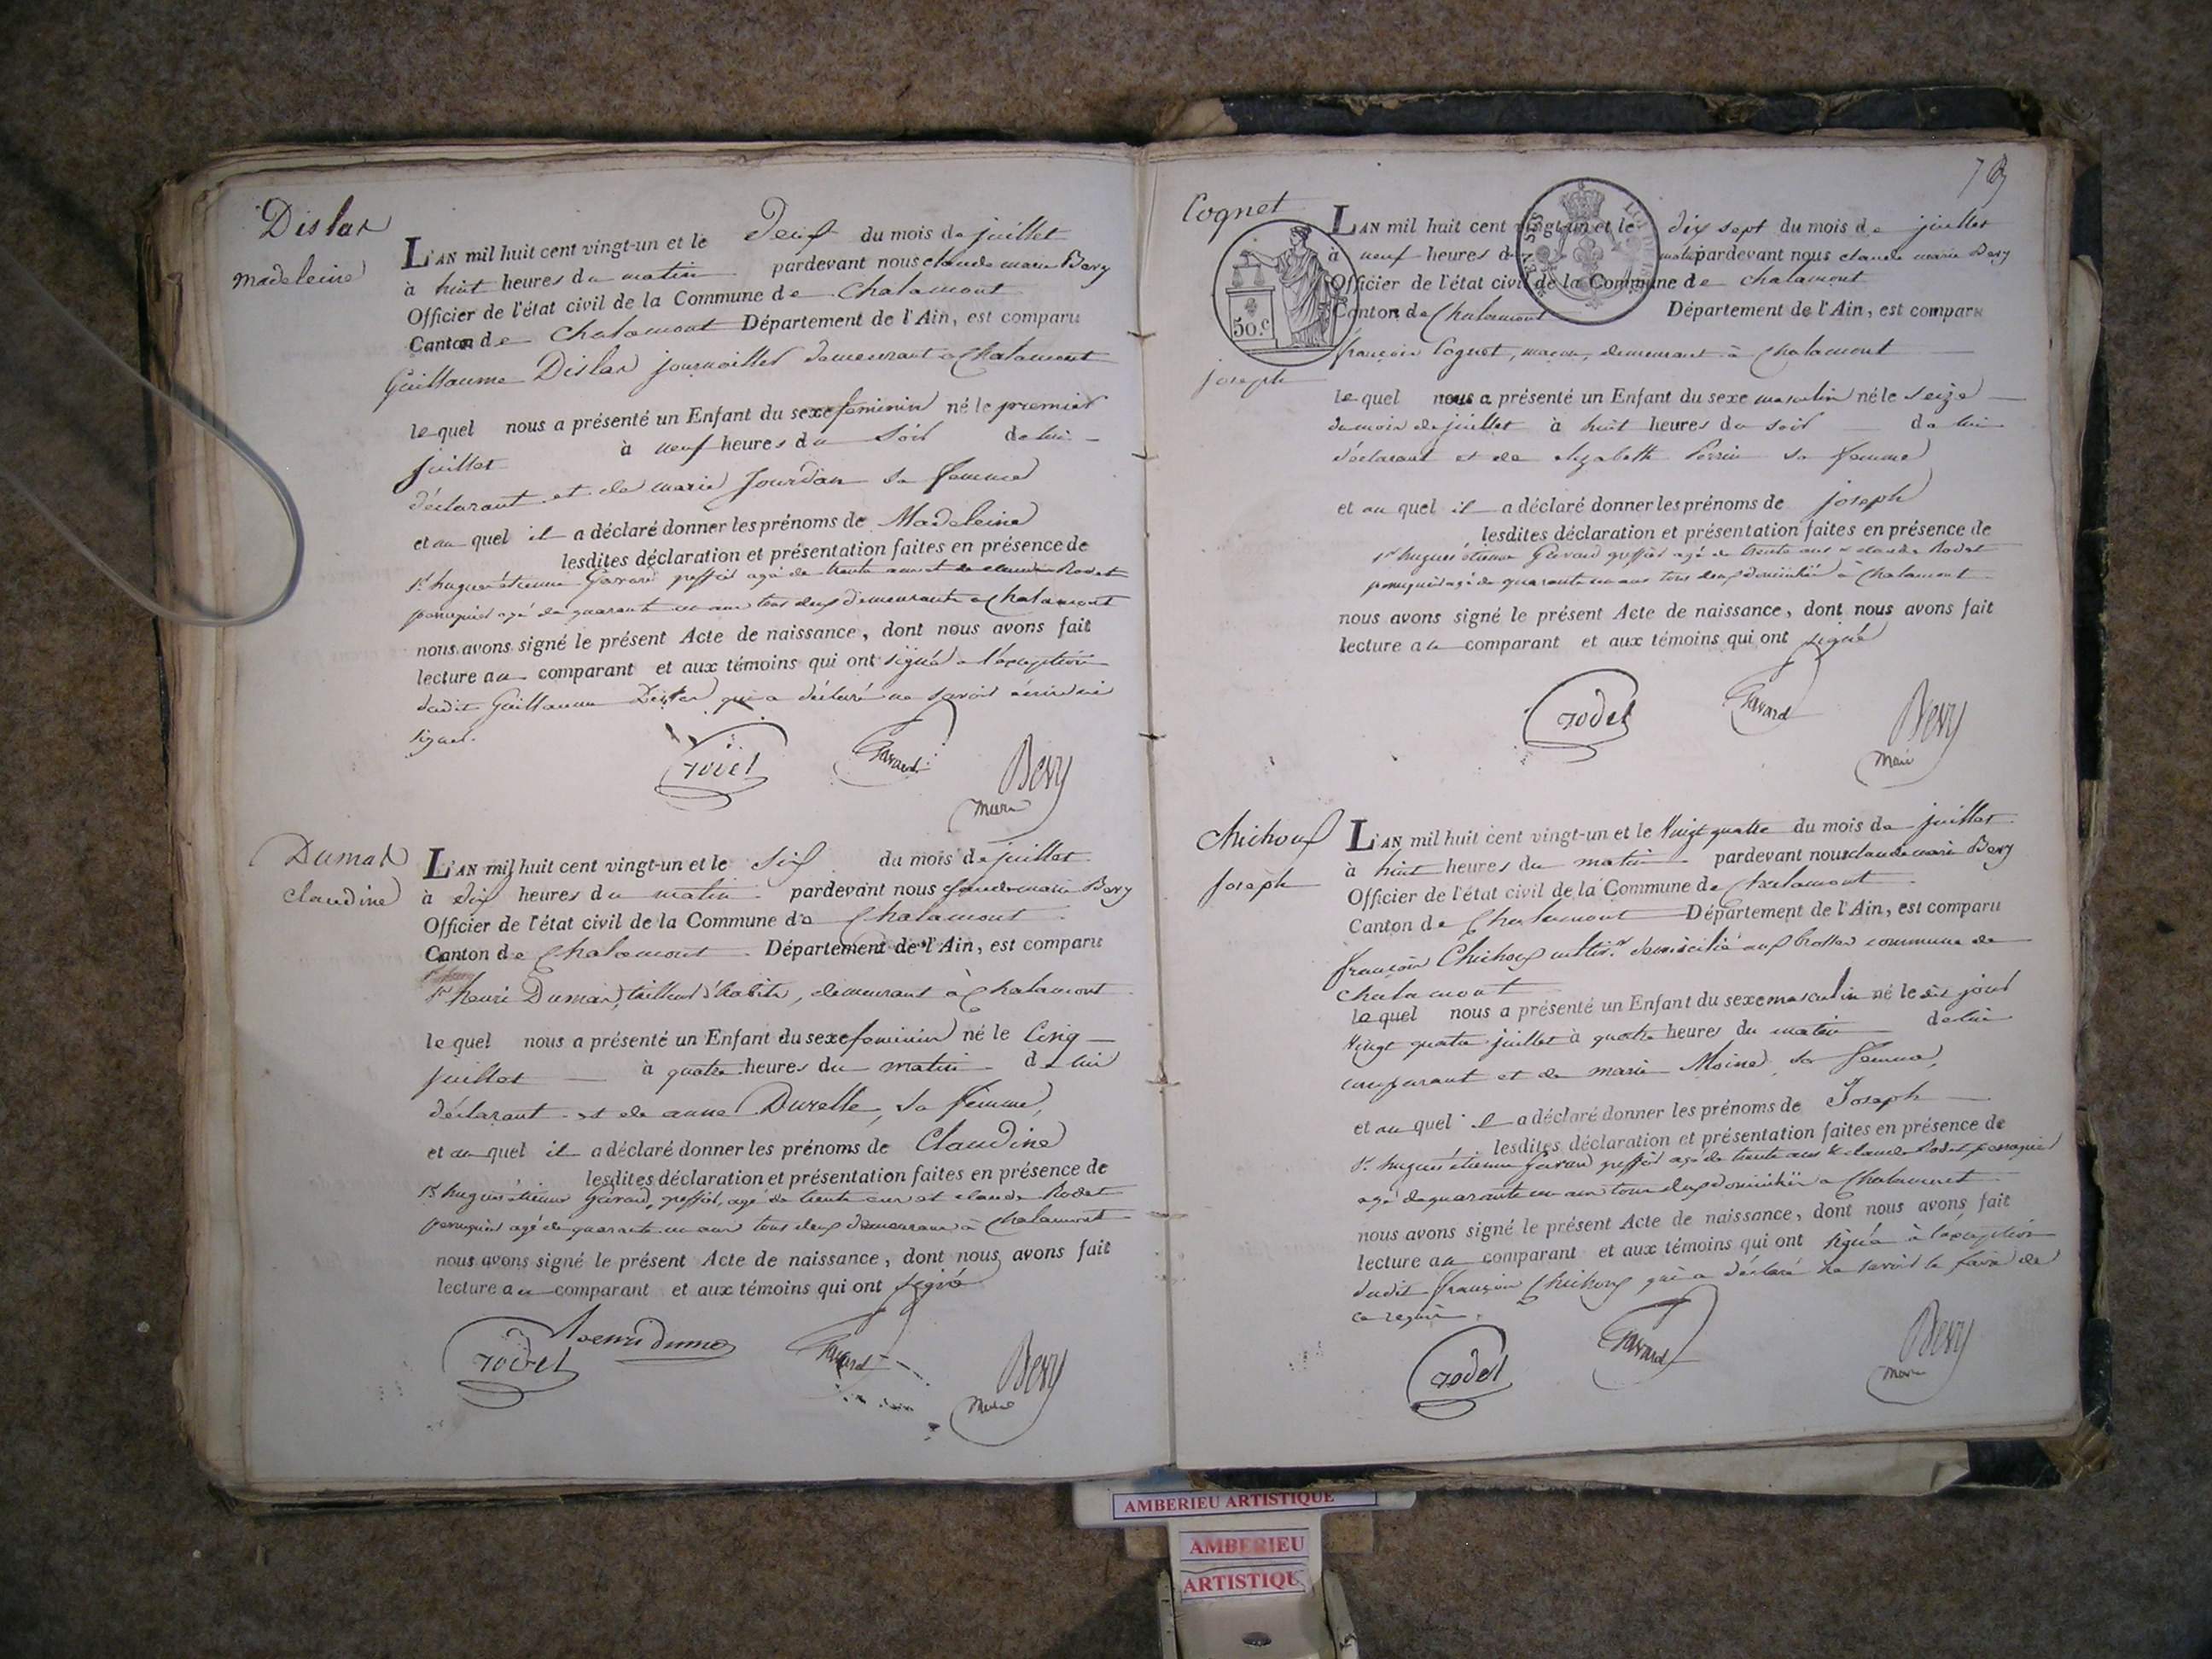 Dislar
madeleine
L'AN mil huit cent vingt-un et le Deux du mois de juillet
à huit heures du matin pardevant nous claude marie Bery
Officier de l'état civil de la Commune de Chalamont
Canton de Chalamont Département de l'Ain, est comparu
Guillaume Dislar journailler demeurant a Chalamont
le quel nous a présenté un Enfant du sexe feminin né le premier
juillet à neuf heures du Soir de lui
déclarant et de marie Jourdan sa femme
et au quel il a déclaré donner les prénoms de Madeleine
lesdites déclaration et présentation faites en présence de
sr. hugues étienne Gavard greffier agé de trente ans et de claude Rodet
perruquier agé de quarante un ans tous deux demeurants a Chalamont
nous avons signé le présent Acte de naissance, dont nous avons fait
lecture au comparant et aux témoins qui ont signé a l'exception
dudit Guillaume Dislar qui a déclaré ne savoir écrire ni
signer.
rodet Gavard Bery
Maire
Dumas
claudine
L'AN mil huit cent vingt-un et le Six du mois de juillet
à dix heures du matin pardevant nous claude marie Bery
Officier de l'état civil de la Commune de Chalamont
Canton de Chalamont Département de l'Ain, est comparu
sr henri Dumas, tailleur d'habits, demeurant à Chalamont
le quel nous a présenté un Enfant du sexe feminin né le Cinq
juillet à quatre heures du matin de lui
déclarant et de anne Durelle, sa femme,
et au quel il a déclaré donner les prénoms de Claudine
lesdites déclaration et présentation faites en présence de
sr hugues étienne Gavard, greffier, agé de trente ans et claude Rodet
perruquier agé de quarante un ans tous deux demeurans à Chalamont
nous avons signé le présent Acte de naissance, dont nous avons fait
lecture au comparant et aux témoins qui ont signé
rodet henri dumas Gavard Bery
Maire
79
Cognet
joseph
50.c
L'AN mil huit cent vingt-un et le dix sept du mois de juillet
à neuf heures du matin pardevant nous claude marie Bery
Officier de l'état civil de la Commune de chalamont
Canton de Chalamont Département de l'Ain, est comparu
françois Cognet, maçon, demeurant à Chalamont
le quel nous a présenté un Enfant du sexe masculin né le seize
du mois de juillet à huit heures du soir de lui
déclarant et de elizabeth Perrin sa femme
et au quel il a déclaré donner les prénoms de joseph
lesdites déclaration et présentation faites en présence de
sr hugues étienne Gavard greffier agé de trente ans & claude Rodet
perruquier agé de quarante un ans tous deux domiciliés à Chalamont
nous avons signé le présent Acte de naissance, dont nous avons fait
lecture au comparant et aux témoins qui ont signé
rodet Gavard Bery
Maire
Chichoux
joseph
L'AN mil huit cent vingt-un et le Vingt quatre du mois de juillet
à huit heures du matin pardevant nous claude marie Bery
Officier de l'état civil de la Commune de Chalamont
Canton de Chalamont Département de l'Ain, est comparu
françois Chichoux cultivr. domicilié aux brosses commune de
chalamont
le quel nous a présenté un Enfant du sexe masculin né le dit jour
Vingt quatre juillet à quatre heures du matin de lui
comparant et de marie Moine, sa femme,
et au quel il a déclaré donner les prénoms de Joseph
lesdites déclaration et présentation faites en présence de
sr. hugues étienne Gavard greffier agé de trente ans & claude Rodet perruquier
agé de quarante un ans tous deux domiciliés a Chalamont
nous avons signé le présent Acte de naissance, dont nous avons fait
lecture au comparant et aux témoins qui ont signé à l'exception
dudit françois Chichoux qui a déclaré ne savoir le faire de
ce requis.
rodet Gavard Bery
Maire
AMBERIEU ARTISTIQUE
AMBERIEU
ARTISTIQU